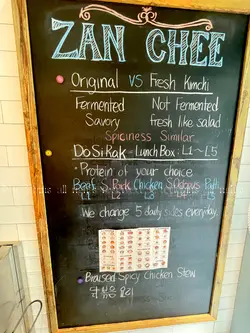 ZAN CHEE
Original VS Fresh Kimchi
Fermented Not Fermented
Savory fresh like salad
Spiciness Similar
DoSiRak - Lunch Box: L1 ~ L5
Protein of your choice
Beef Pork Chicken
L1 L2 L3 L4 L5
We change 5 daily sides everyday
Braised Spicy Chicken Stew